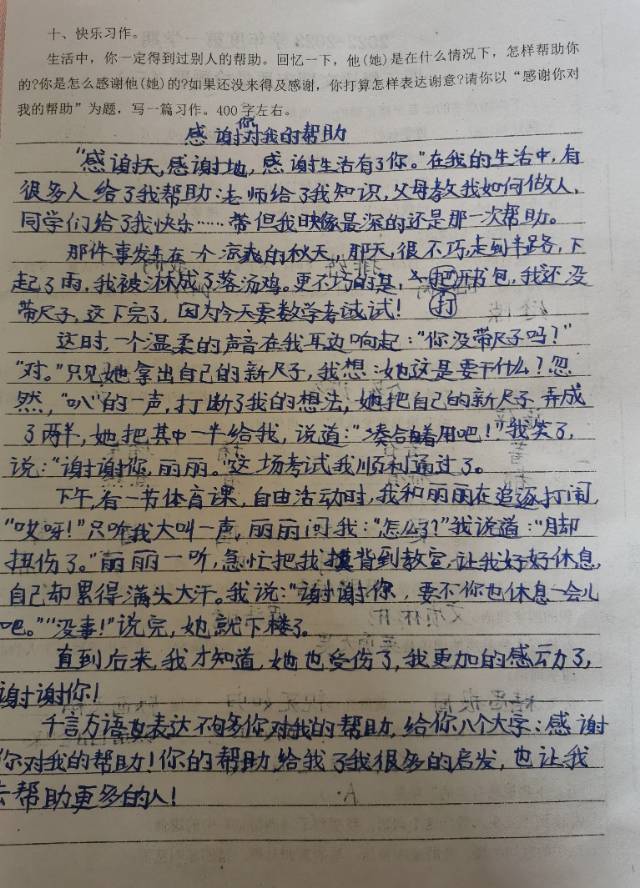 十、快乐习作。
生活中，你一定得到过别人的帮助。回忆一下，他(她)是在什么情况下，怎样帮助你
的?你是怎么感谢他(她)的?如果还没来得及感谢，你打算怎样表达谢意?请你以“感谢你对
我的帮助”为题，写一篇习作。400字左右。
感谢你对我的帮助
“感谢天，感谢地，感谢生活有了你。”在我的生活中，有
很多人给了我帮助：老师给了我知识，父母教我如何做人，
同学们给了我快乐……但我印象最深的还是那一次帮助。
那件事发生在一个凉爽的秋天，那天，很不巧，走到半路，下
起了雨，我被淋成了落汤鸡。更不巧的是，一打开书包，我还没
带尺子，这下完了，因为今天要数学考试！
这时，一个温柔的声音在我耳边响起：“你没带尺子吗？”
“对。”只见她拿出自己的新尺子，我想：她这是要干什么？忽
然，“叭”的一声，打断了我的想法，她把自己的新尺子弄成
了两半，她把其中一半给我，说道：“凑合着用吧！”我笑了，
说：“谢谢你，丽丽。”这场考试我顺利通过了。
下午，有一节体育课，自由活动时，我和丽丽在追逐打闹，
“哎呀！”只听我大叫一声，丽丽问我：“怎么了？”我说道：“脚
扭伤了。”丽丽一听，急忙把我背到教室，让我好好休息，
自己却累得满头大汗。我说：“谢谢你，要不你也休息一会儿
吧。”“没事！”说完，她就下楼了。
直到后来，我才知道，她也受伤了，我更加的感动了，
谢谢你！
千言万语表达不够你对我的帮助，给你八个大字：感谢
你对我的帮助！你的帮助给我了我很多的启发，也让我
去帮助更多的人！